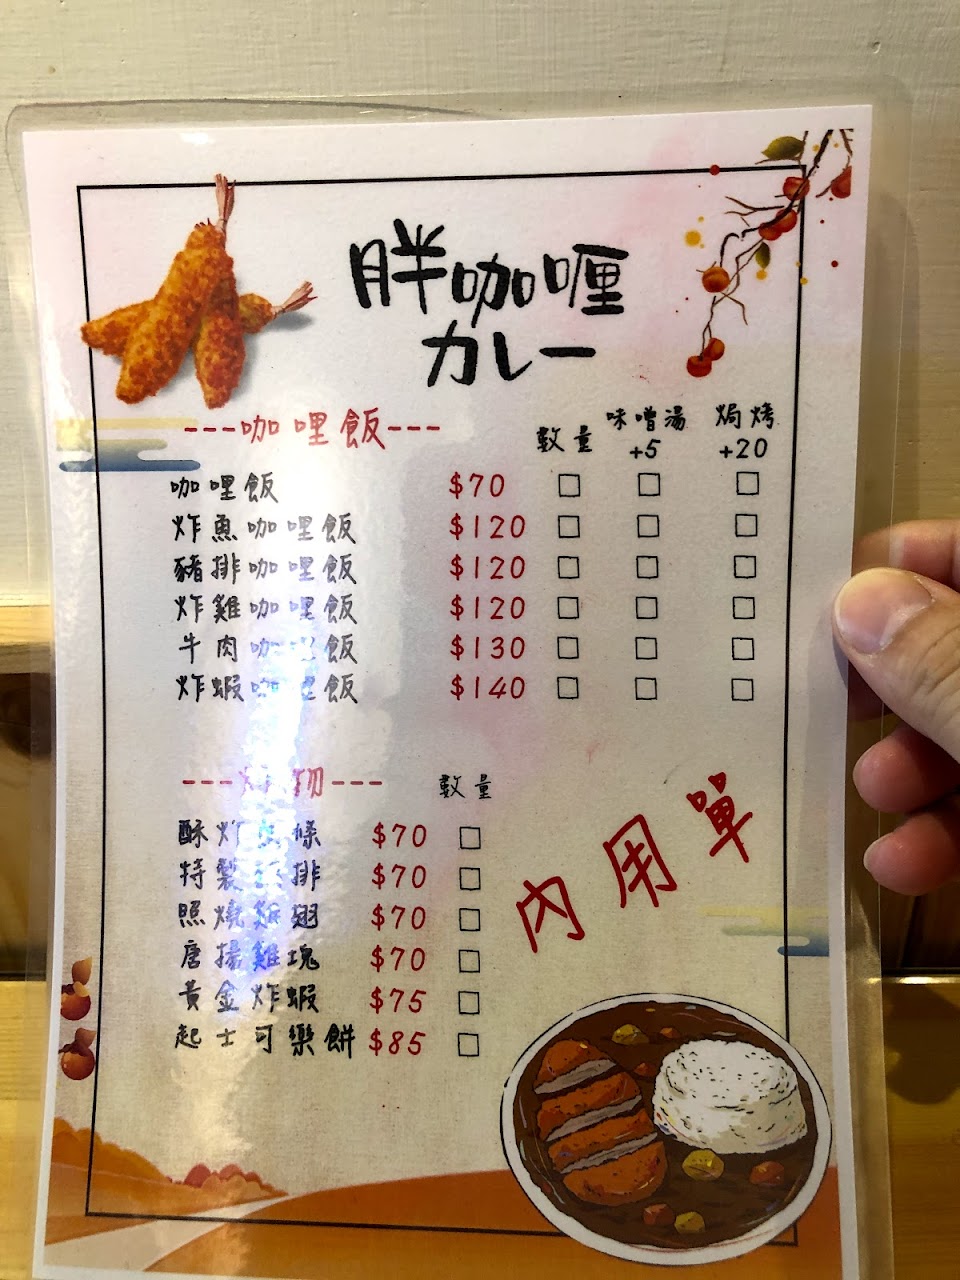 胖咖喱
カレー
---咖哩飯---
數量
味噌湯
+5
焗烤
+20
咖哩飯 $70 □ □ □
炸魚咖哩飯 $120 □ □ □
豬排咖哩飯 $120 □ □ □
炸雞咖哩飯 $120 □ □ □
牛肉咖哩飯 $130 □ □ □
炸蝦咖哩飯 $140 □ □ □
---炸物---
數量
酥炸魚條 $70 □
特製豬排 $70 □
照燒雞翅 $70 □
唐揚雞塊 $70 □
黃金炸蝦 $75 □
起士可樂餅 $85 □
內用單